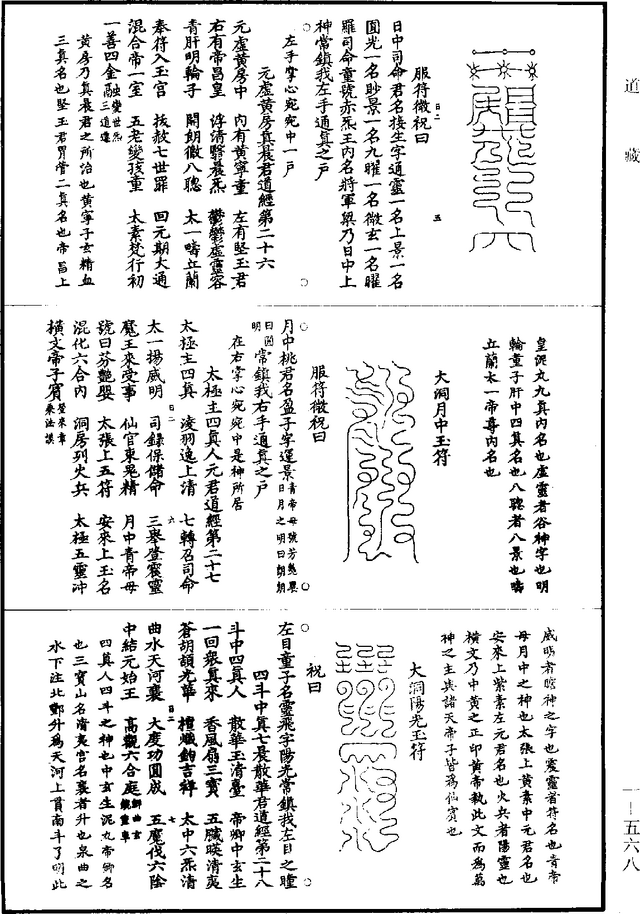 道藏
服符微祝曰
日二
五
日中司命君名接生字通靈一名上景一名
圓光一名眇景一名九曜一名微玄一名曜
羅司命童號赤炁玉內名將軍梁乃日中上
神常鎮我左手通真之戶
左手掌心宛宛中一戶
元虛黃房真晨君道經第二十六
元虛黃房中 內有黃寧童 左有堅玉君
右有帝昌皇 浮清翳晨炁 鬱鬱虛靈容
青肝明輪子 開朗徹八聰 太一疇立蘭
奉符入玉宮 拔赦七世罪 回元期大通
混合帝一室 五老變孩童 太素梵行初
一善四金融 變世炁三道還
黃房乃真晨君之所治也黃寧子玄精血
三真名也堅玉君胃管二真名也帝昌上
皇泥丸九真內名也虛靈者谷神字也明
輪童子肝中四真名也八聰者八景也疇
立蘭太一帝尊內名也
大洞月中玉符
服符微祝曰
月中桃君名盈子字運景 青帝母號芳艷嬰日月之明曰朗朗
曰圓明 常鎮我右手通真之戶
在右掌心宛宛中是神所居
太極主四真人元君道經第二十七
太極主四真 淩羽逸上清 七轉召司命
日二
六
太一揚威明 司錄保儲命 三舉登震靈
魔王來受事 仙官東晃精 月中青帝母
號曰芬艷嬰 太張上五符 安來上玉名
混化六合內 洞房列火兵 太極五靈沖
橫文帝子賓
威明者膽神之字也震靈者符名也青帝
母月中之神也太張上黃素中元君名也
安來上紫素左元君名也火兵者陽靈也
橫文乃中黃之正印黃帝執此文而為萬
神之主與諸天帝子皆為仙賓也
大洞陽光玉符
祝曰
左目童子名靈飛字陽光常鎮我左目之瞳
四斗中真七晨散華君道經第二十八
斗中四真人 散華玉清臺 帝卿中玄生
一回衆真來 香風扇三寶 五臟暎清夷
蒼胡頡光華 檀熾鈞吉絆 太中六炁清
日二
七
曲水天河襄 大度功圓成 五魔伐六陰
中結元始王 高觀六合庭
四真人四斗之神也中玄生泥丸帝卿名
也三寶山名清夷宮名襄者升也泉曲之
水下注北酆升為天河上貫南斗了明此
一—五六八